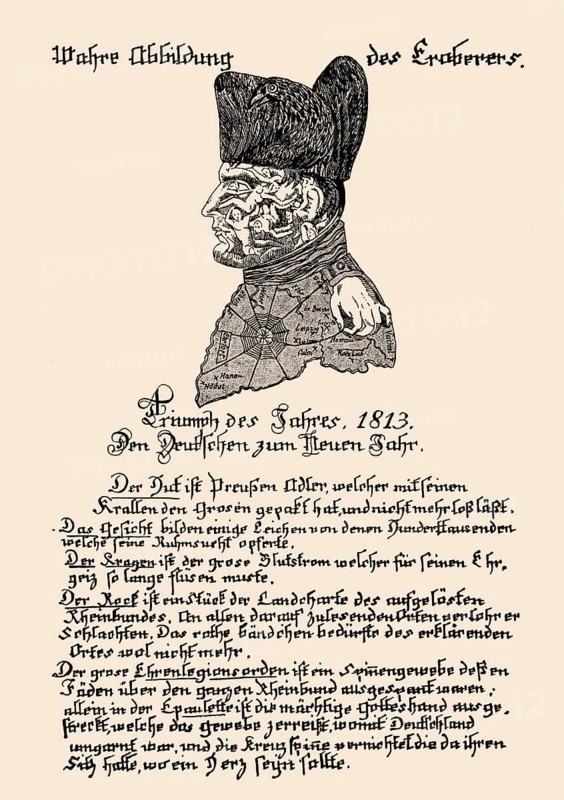 Wahre Abbildung des Eroberers.
Triumph des Jahres, 1813.
Den Deutschen zum Neuen Jahr.
Der Hut ist Preußen Adler, welcher mit seinen
Krallen den Grosen gepakt hat, und nicht mehr loß läßt.
Das Gesicht bilden einige Leichen von denen Hunderttausenden
welche seine Ruhmsucht opferte.
Der Kragen ist der grose Blutstrom welcher für seinen Ehr,
geiz so lange flüsen muste.
Der Rock ist ein Stück der Landcharte des aufgelösten
Rheinbundes. An allen darauf zulesenden Orten verlohr er
Schlachten. Das rothe Bändchen bedürfte des erklärenden
Ortes wol nicht mehr.
Der grose Ehrenlegionsorden ist ein Spinengewebe deßen
Fäden über den ganzen Rheinbund ausgespant waren;
allein in der Epaulette ist die mächtige Gotteshand ausge,
streckt, welche das gewebe zerreißt, womit Deutschland
umgarnt war, und die Kreuzspine vernichtet die da ihren
Sitz hatte, wo ein Herz seyn sollte.